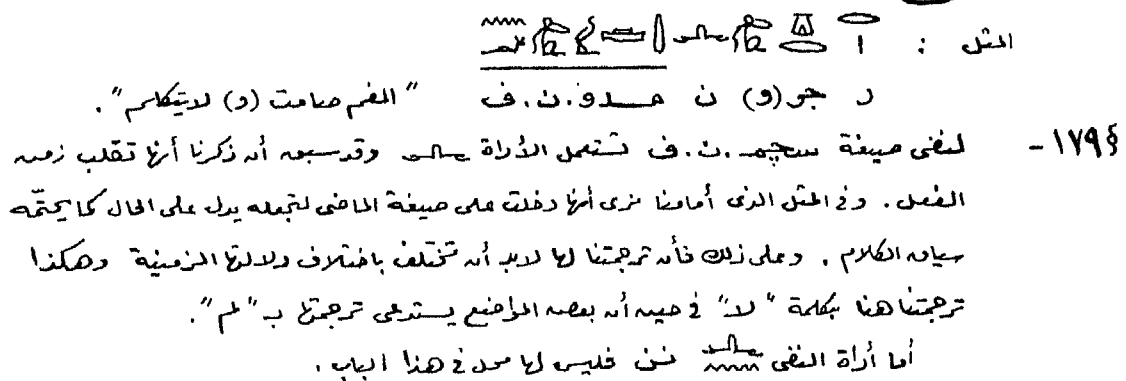 المثل :
ر جر(و) ن مدو.ن.ف " الفم صامت (و) لا يتكلم ".
§ ١٧٩ - لنفى صيغة سچم.ن.ف تستعمل الأداة وقد سبق أن ذكرنا أنها تقلب زمن
الفعل . وفى المثل الذى أمامنا نرى أنها دخلت على صيغة الماضى لتجعله يدل على الحال كما يحتّمه
سياق الكلام . وعلى ذلك فأن ترجمتنا لها لابد أن تختلف باختلاف دلالتها الزمنية وهكذا
ترجمتنا هنا بكلمة " لا " فى حين أن بعض المواضع يستدعى ترجمتها بـ " لم ".
أما أداة النفى نن فليس لها محل فى هذا الباب .